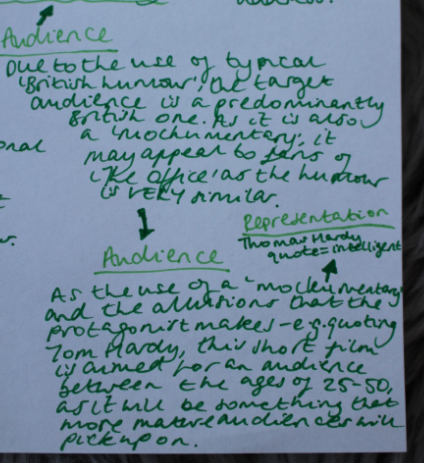 Audience
Due to the use of typical
'British humour', the target
audience is a predominantly
British one. As it is also
a 'mockumentary', it
may appeal to fans of
'The Office' as the humour
is VERY similar.
Representation
Thomas Hardy
quote = intelligent
Audience
As the use of a 'mockumentary'
and the allusions that the
protagonist makes - e.g. quoting
Tom Hardy, this short film
is aimed for an audience
between the ages of 25-50,
as it will be something that
more mature audiences will
pick up on.